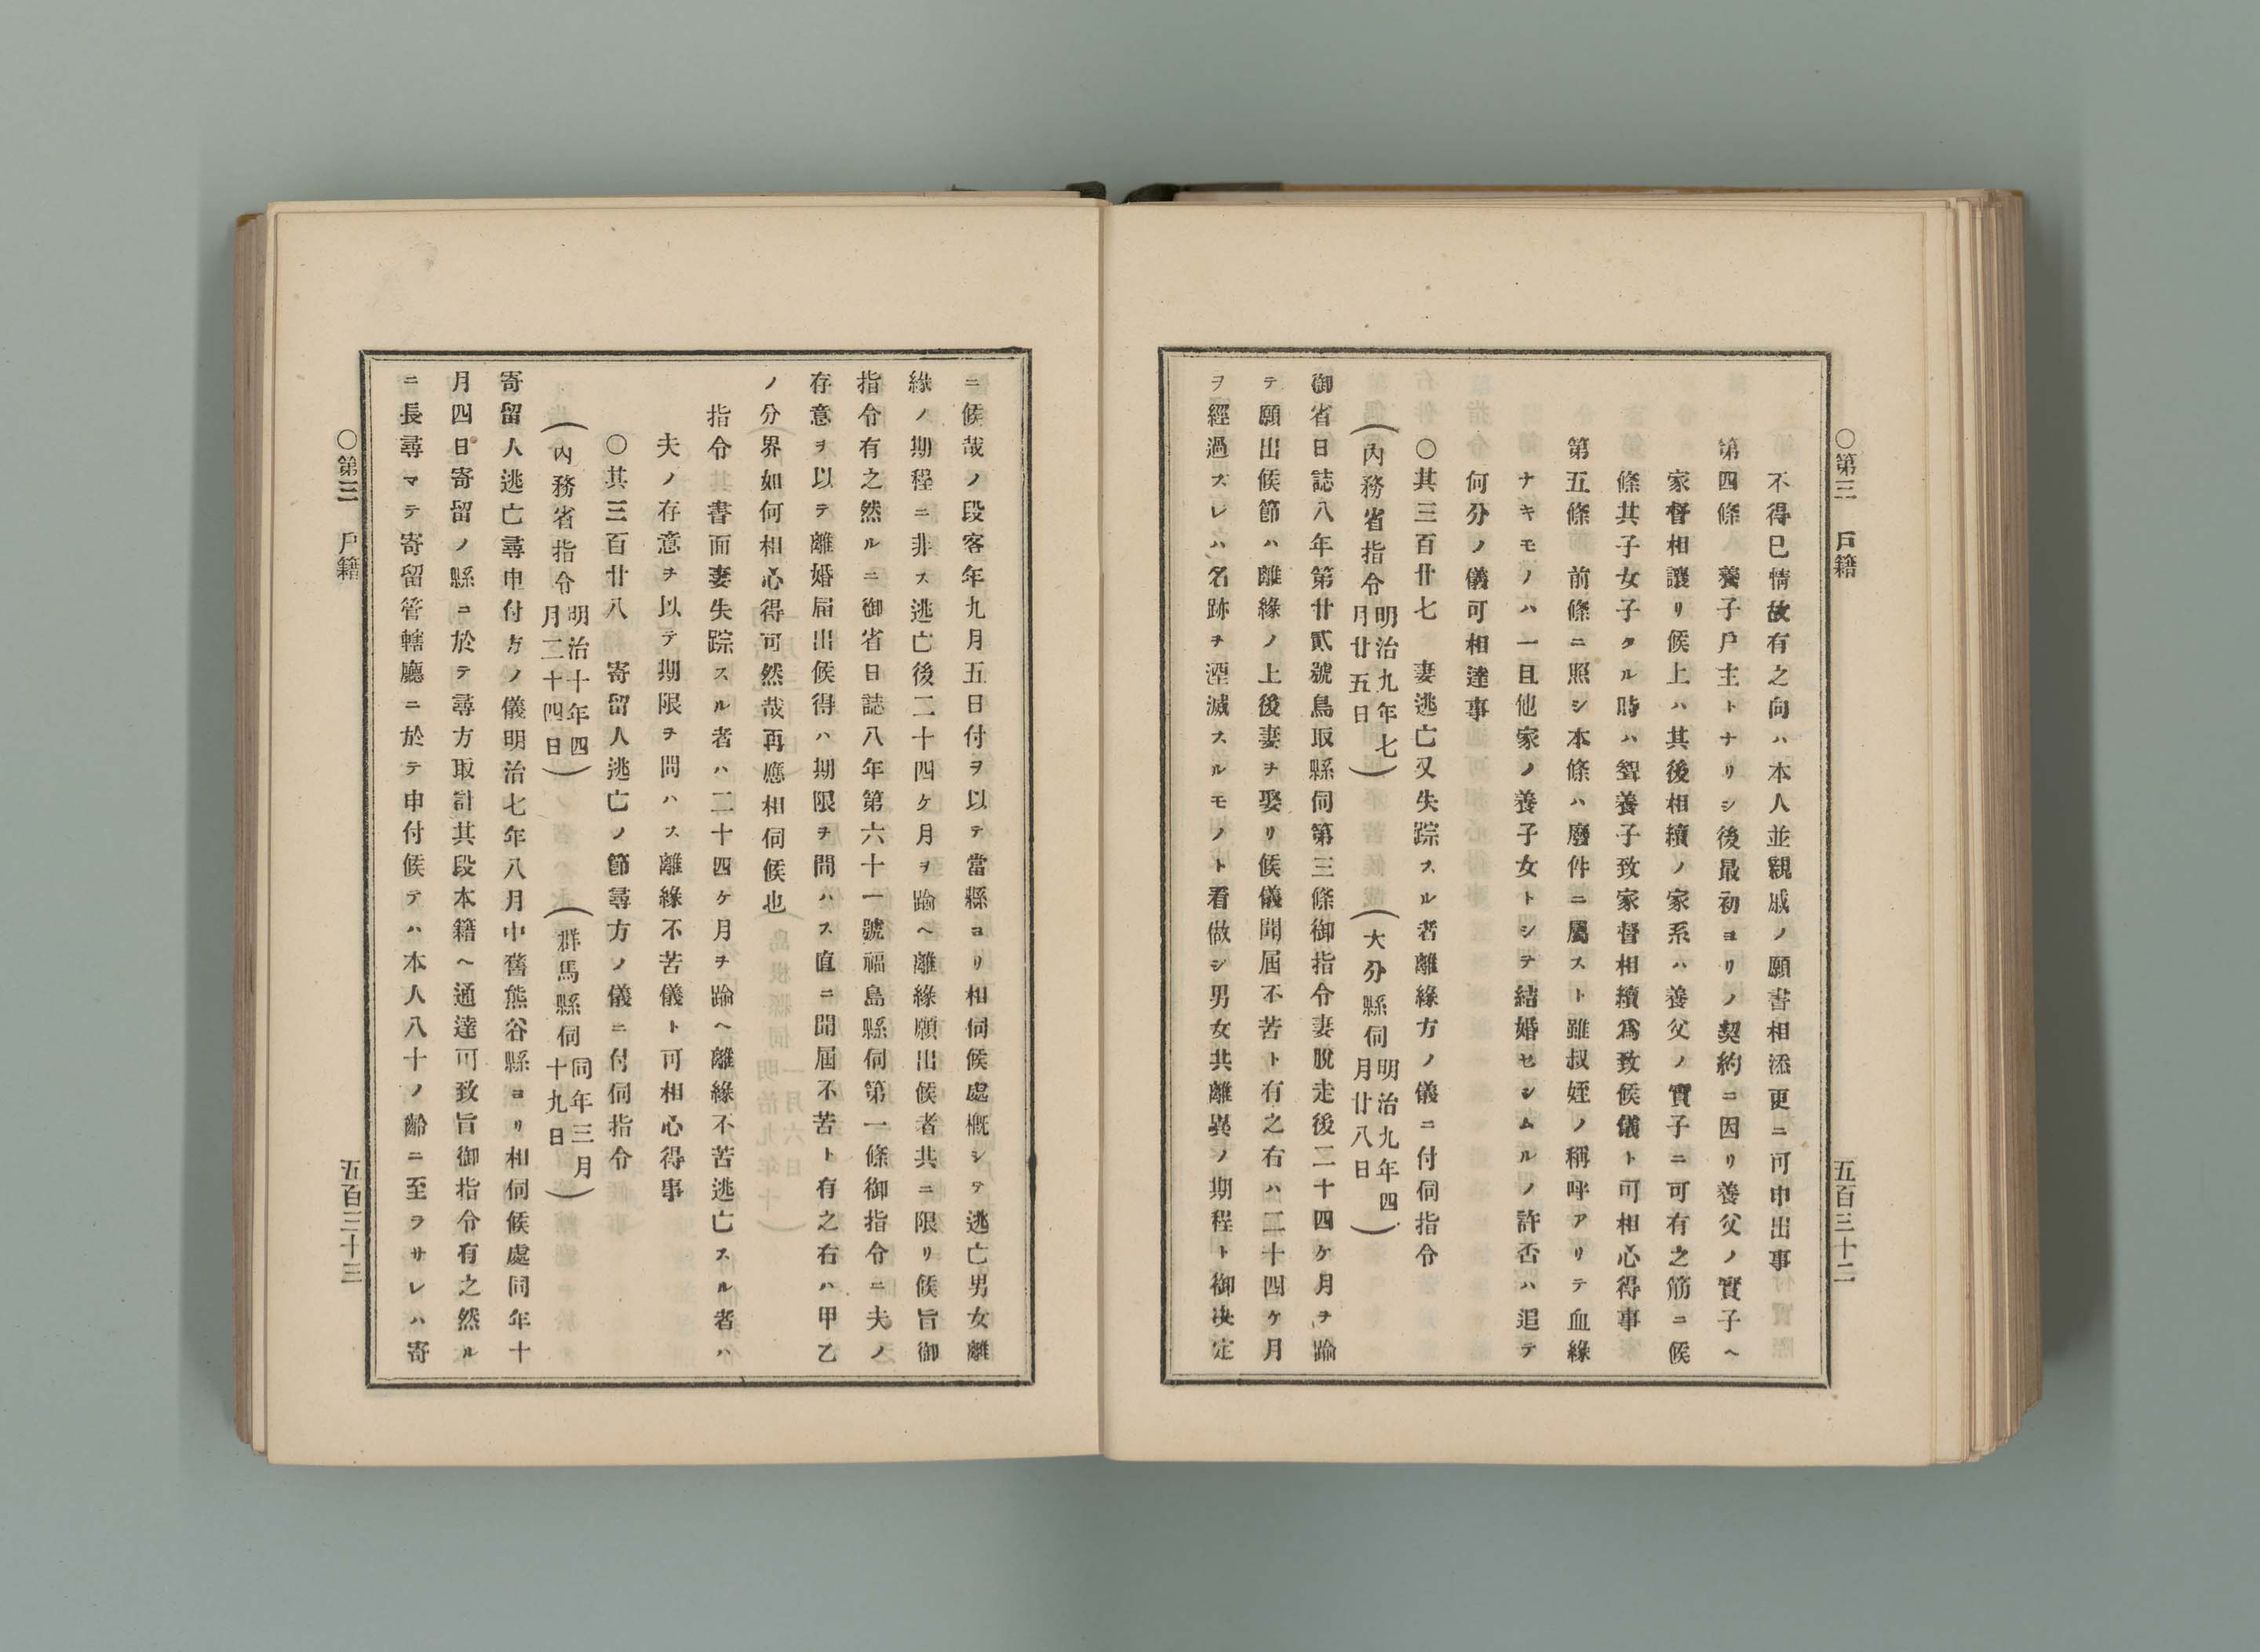 ○第三　戶籍　五百三十二
不得已情故有之向ハ本人並親戚ノ願書相添更ニ可申出事
第四條　養子戶主トナリシ後最初ヨリノ契約ニ因リ養父ノ實子ヘ
家督相讓リ候上ハ其後相續ノ家系ハ養父ノ實子ニ可有之筋ニ候
條其子女子タル時ハ聟養子致家督相續爲致候儀ト可相心得事
第五條　前條ニ照シ本條ハ廢件ニ屬スト雖叔姪ノ稱呼アリテ血緣
ナキモノハ一旦他家ノ養子女トシテ結婚セシムルノ許否ハ追テ
何分ノ儀可相達事
○其三百廿七　妻逃亡又失踪スル者離緣方ノ儀ニ付伺指令
（內務省指令明治九年七月廿五日）（大分縣伺明治九年四月廿八日）
御省日誌八年第廿貳號鳥取縣伺第三條御指令妻脫走後二十四ケ月ヲ踰
テ願出候節ハ離緣ノ上後妻ヲ娶リ候儀聞屆不苦ト有之右ハ二十四ケ月
ヲ經過スレハ名跡ヲ湮滅スルモノト看做シ男女共離異ノ期程ト御決定
ニ候哉ノ段客年九月五日付ヲ以テ當縣ヨリ相伺候處概シテ逃亡男女離
緣ノ期程ニ非ス逃亡後二十四ケ月ヲ踰ヘ離緣願出候者共ニ限リ候旨御
指令有之然ルニ御省日誌八年第六十一號福島縣伺第一條御指令ニ夫ノ
存意ヲ以テ離婚屆出候得ハ期限ヲ問ハス直ニ聞屆不苦ト有之右ハ甲乙
ノ分界如何相心得可然哉再應相伺候也
指令　書面妻失踪スル者ハ二十四ケ月ヲ踰ヘ離緣不苦逃亡スル者ハ
夫ノ存意ヲ以テ期限ヲ問ハス離緣不苦儀ト可相心得事
○其三百廿八　寄留人逃亡ノ節尋方ノ儀ニ付伺指令
（內務省指令明治十年四月二十四日）（群馬縣伺同年三月十九日）
寄留人逃亡尋申付方ノ儀明治七年八月中舊熊谷縣ヨリ相伺候處同年十
月四日寄留ノ縣ニ於テ尋方取計其段本籍ヘ通達可致旨御指令有之然ル
ニ長尋マテ寄留管轄廳ニ於テ申付候テハ本人八十ノ齡ニ至ラサレハ寄
○第三　戶籍　五百三十三